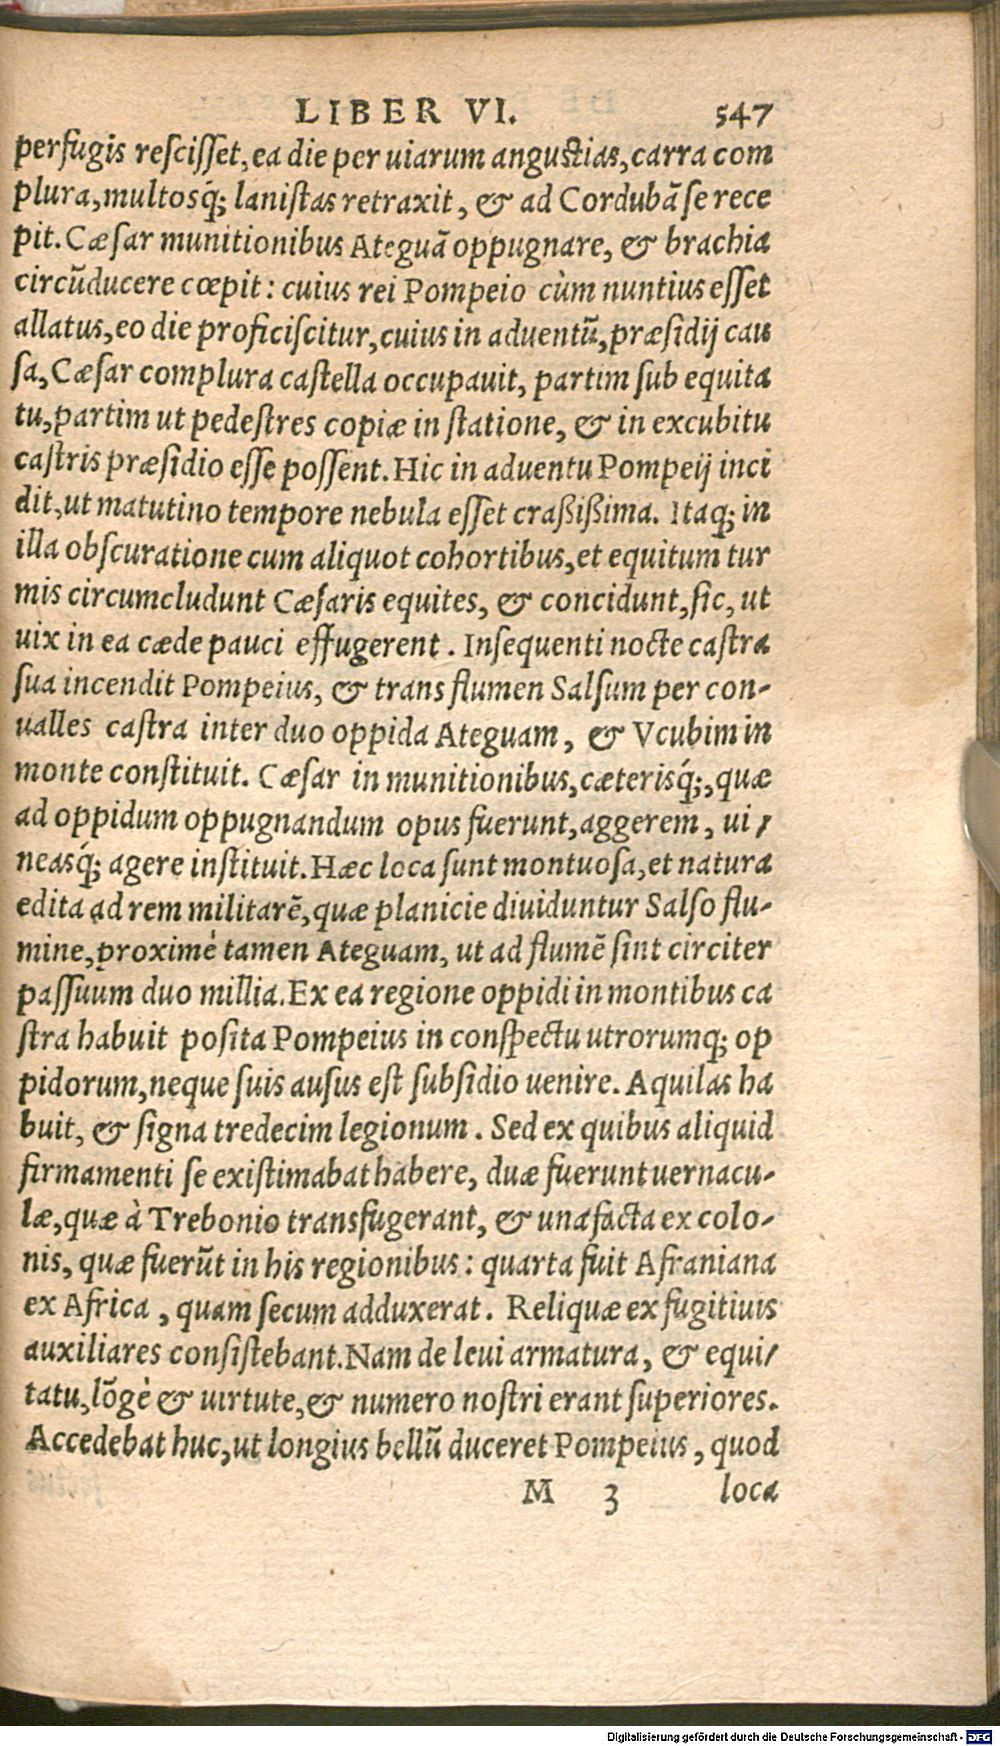 LIBER VI. 547
perfugis resciſſet, ea die per uiarum anguſtias, carra com
plura, multosq́; laniſtas retraxit, & ad Cordubã ſe rece
pit. Cæſar munitionibus Ateguã oppugnare, & brachia
circũducere cœpit: cuius rei Pompeio cùm nuntius eſſet
allatus, eo die proficiſcitur, cuius in aduentũ, præſidij cau
ſa, Cæſar complura caſtella occupauit, partim ſub equita
tu, partim ut pedeſtres copiæ in ſtatione, & in excubitu
caſtris præſidio eſſe poſſent. Hic in aduentu Pompeij inci
dit, ut matutino tempore nebula eſſet craßißima. Itaq; in
illa obſcuratione cum aliquot cohortibus, et equitum tur
mis circumcludunt Cæſaris equites, & concidunt, ſic, ut
uix in ea cæde pauci effugerent. Inſequenti nocte caſtra
ſua incendit Pompeius, & trans flumen Salſum per con-
ualles caſtra inter duo oppida Ateguam, & Vcubim in
monte conſtituit. Cæſar in munitionibus, cæterisq́;, quæ
ad oppidum oppugnandum opus fuerunt, aggerem, ui-
neasq́; agere inſtituit. Hæc loca ſunt montuoſa, et natura
edita ad rem militarẽ, quæ planicie diuiduntur Salſo flu-
mine, proximè tamen Ateguam, ut ad flumẽ ſint circiter
paſſuum duo millia. Ex ea regione oppidi in montibus ca
ſtra habuit poſita Pompeius in conſpectu utrorumq; op
pidorum, neque ſuis auſus eſt ſubſidio uenire. Aquilas ha
buit, & ſigna tredecim legionum. Sed ex quibus aliquid
firmamenti ſe exiſtimabat habere, duæ fuerunt uernacu-
læ, quæ à Trebonio transfugerant, & una facta ex colo-
nis, quæ fuerũt in his regionibus: quarta fuit Afraniana
ex Africa, quam ſecum adduxerat. Reliquæ ex fugitiuis
auxiliares conſiſtebant. Nam de leui armatura, & equi-
tatu, lõgè & uirtute, & numero noſtri erant ſuperiores.
Accedebat huc, ut longius bellũ duceret Pompeius, quod
M 3 loca
Digitalisierung gefördert durch die Deutsche Forschungsgemeinschaft - DFG